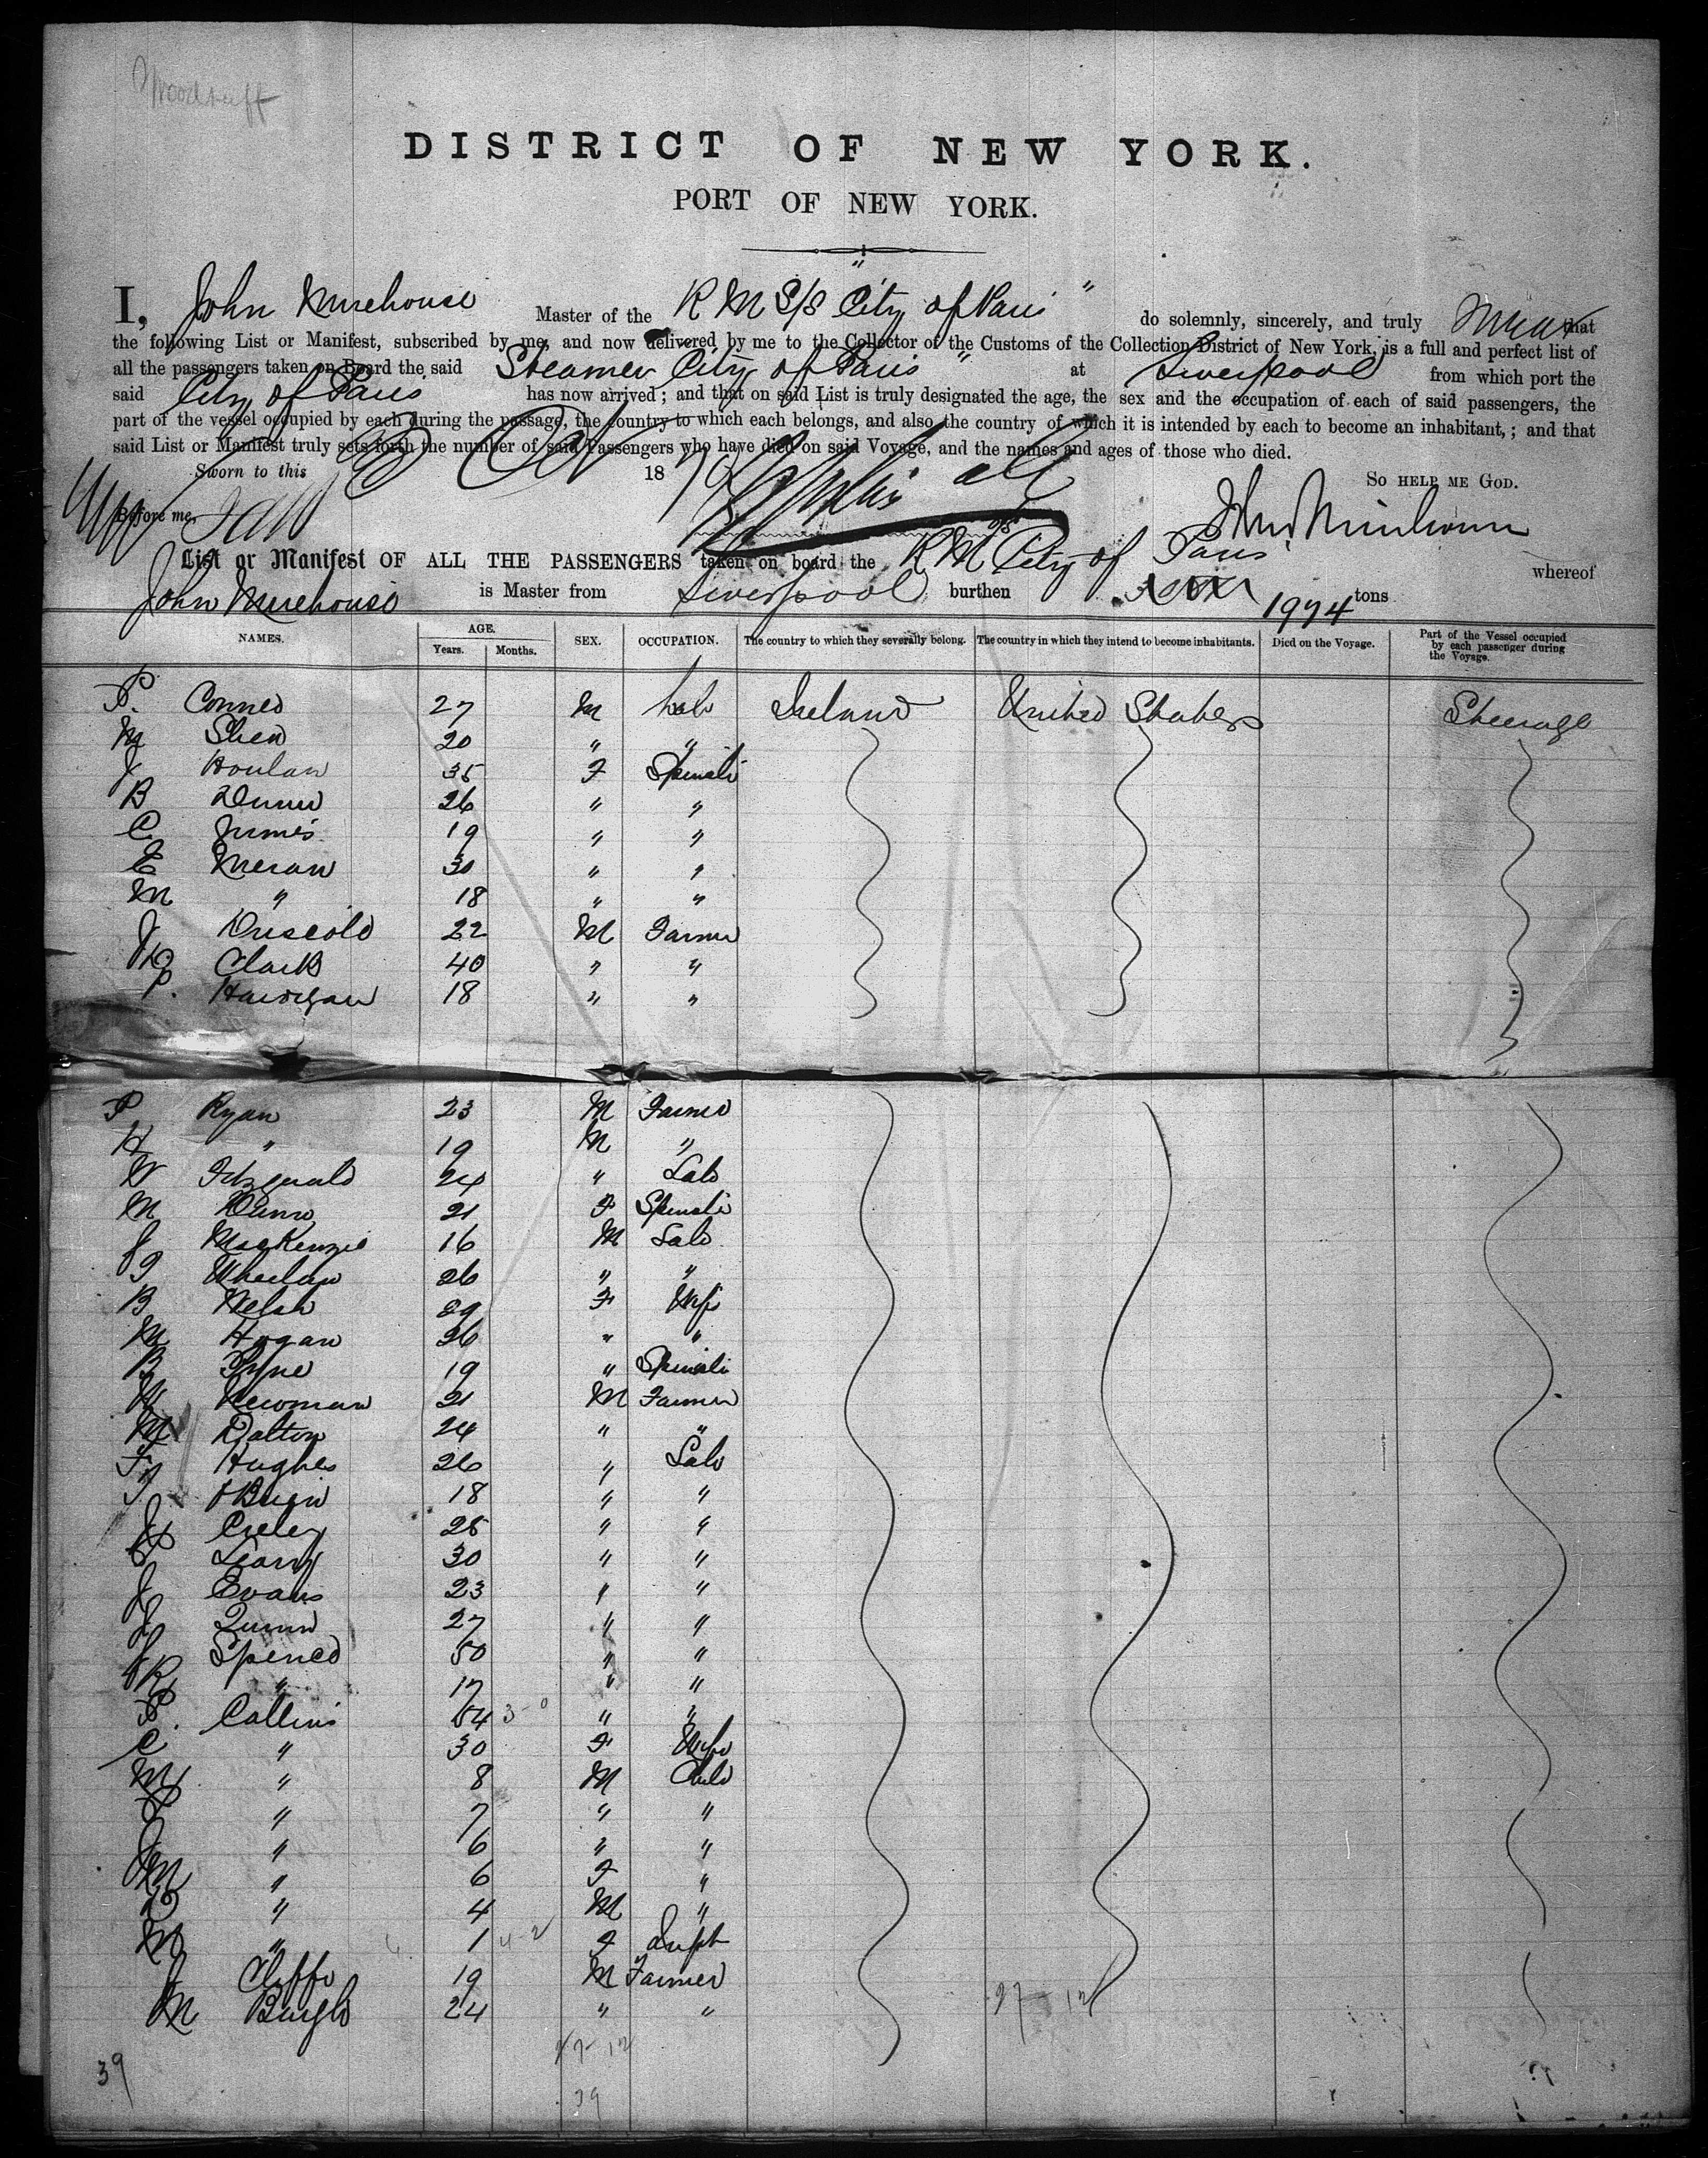 Woodruff
DISTRICT OF NEW YORK.
PORT OF NEW YORK.
I, John Mirehouse Master of the R M S/S "City of Paris" do solemnly, sincerely, and truly swear that
the following List or Manifest, subscribed by me, and now delivered by me to the Collector of the Customs of the Collection District of New York, is a full and perfect list of
all the passengers taken on Board the said Steamer City of Paris" at Liverpool from which port the
said City of Paris has now arrived; and that on said List is truly designated the age, the sex and the occupation of each of said passengers, the
part of the vessel occupied by each during the passage, the country to which each belongs, and also the country of which it is intended by each to become an inhabitant,; and that
said List or Manifest truly sets forth the number of said Passengers who have died on said Voyage, and the names and ages of those who died.
Sworn to this Oct 1870 So help me God.
Before me, John Mirehouse
List or Manifest OF ALL THE PASSENGERS taken on board the R M S/S City of Paris whereof
John Mirehouse is Master from Liverpool burthen 1974 tons
NAMES. AGE. Years. Months. SEX. OCCUPATION. The country to which they severally belong. The country in which they intend to become inhabitants. Died on the Voyage. Part of the Vessel occupied by each passenger during the Voyage.
P. Conned 27 M Lab Ireland United States Steerage
M Shea 20 " "
J Houlan 35 F Spinst
B Dunn 26 " "
C James 19 " "
E Meran 30 " "
M " 18 " "
J Driscold 22 M Farmer
P Clark 40 " "
P. Harrigan 18 " "
P Ryan 23 M Farmer
H " 19 M "
W Fitzgerald 24 " Lab
M Dunn 21 F Spinst
J MacKenzie 16 M Lab
J Whelan 26 " "
B Welsh 29 F Wife
M Hogan 26 " "
B Pyne 19 " Spinst
H Newman 21 M Farmer
M Dalton 24 " "
F Hughes 26 " Lab
J OBrien 18 " "
J Creley 25 " "
P Leary 30 " "
J Evans 23 " "
J Quinn 27 " "
J Spence 50 " "
R " 17 " "
P. Collins 54 3-0 " "
C " 30 F Wife
M " 8 M Child
P " 7 " "
J " 6 " "
M " 6 F "
D " 4 M "
M " 1 4-2 F Inft
J Cliffe 19 M Farmer
M Burgh 24 " "
27-12
27-12
39
39